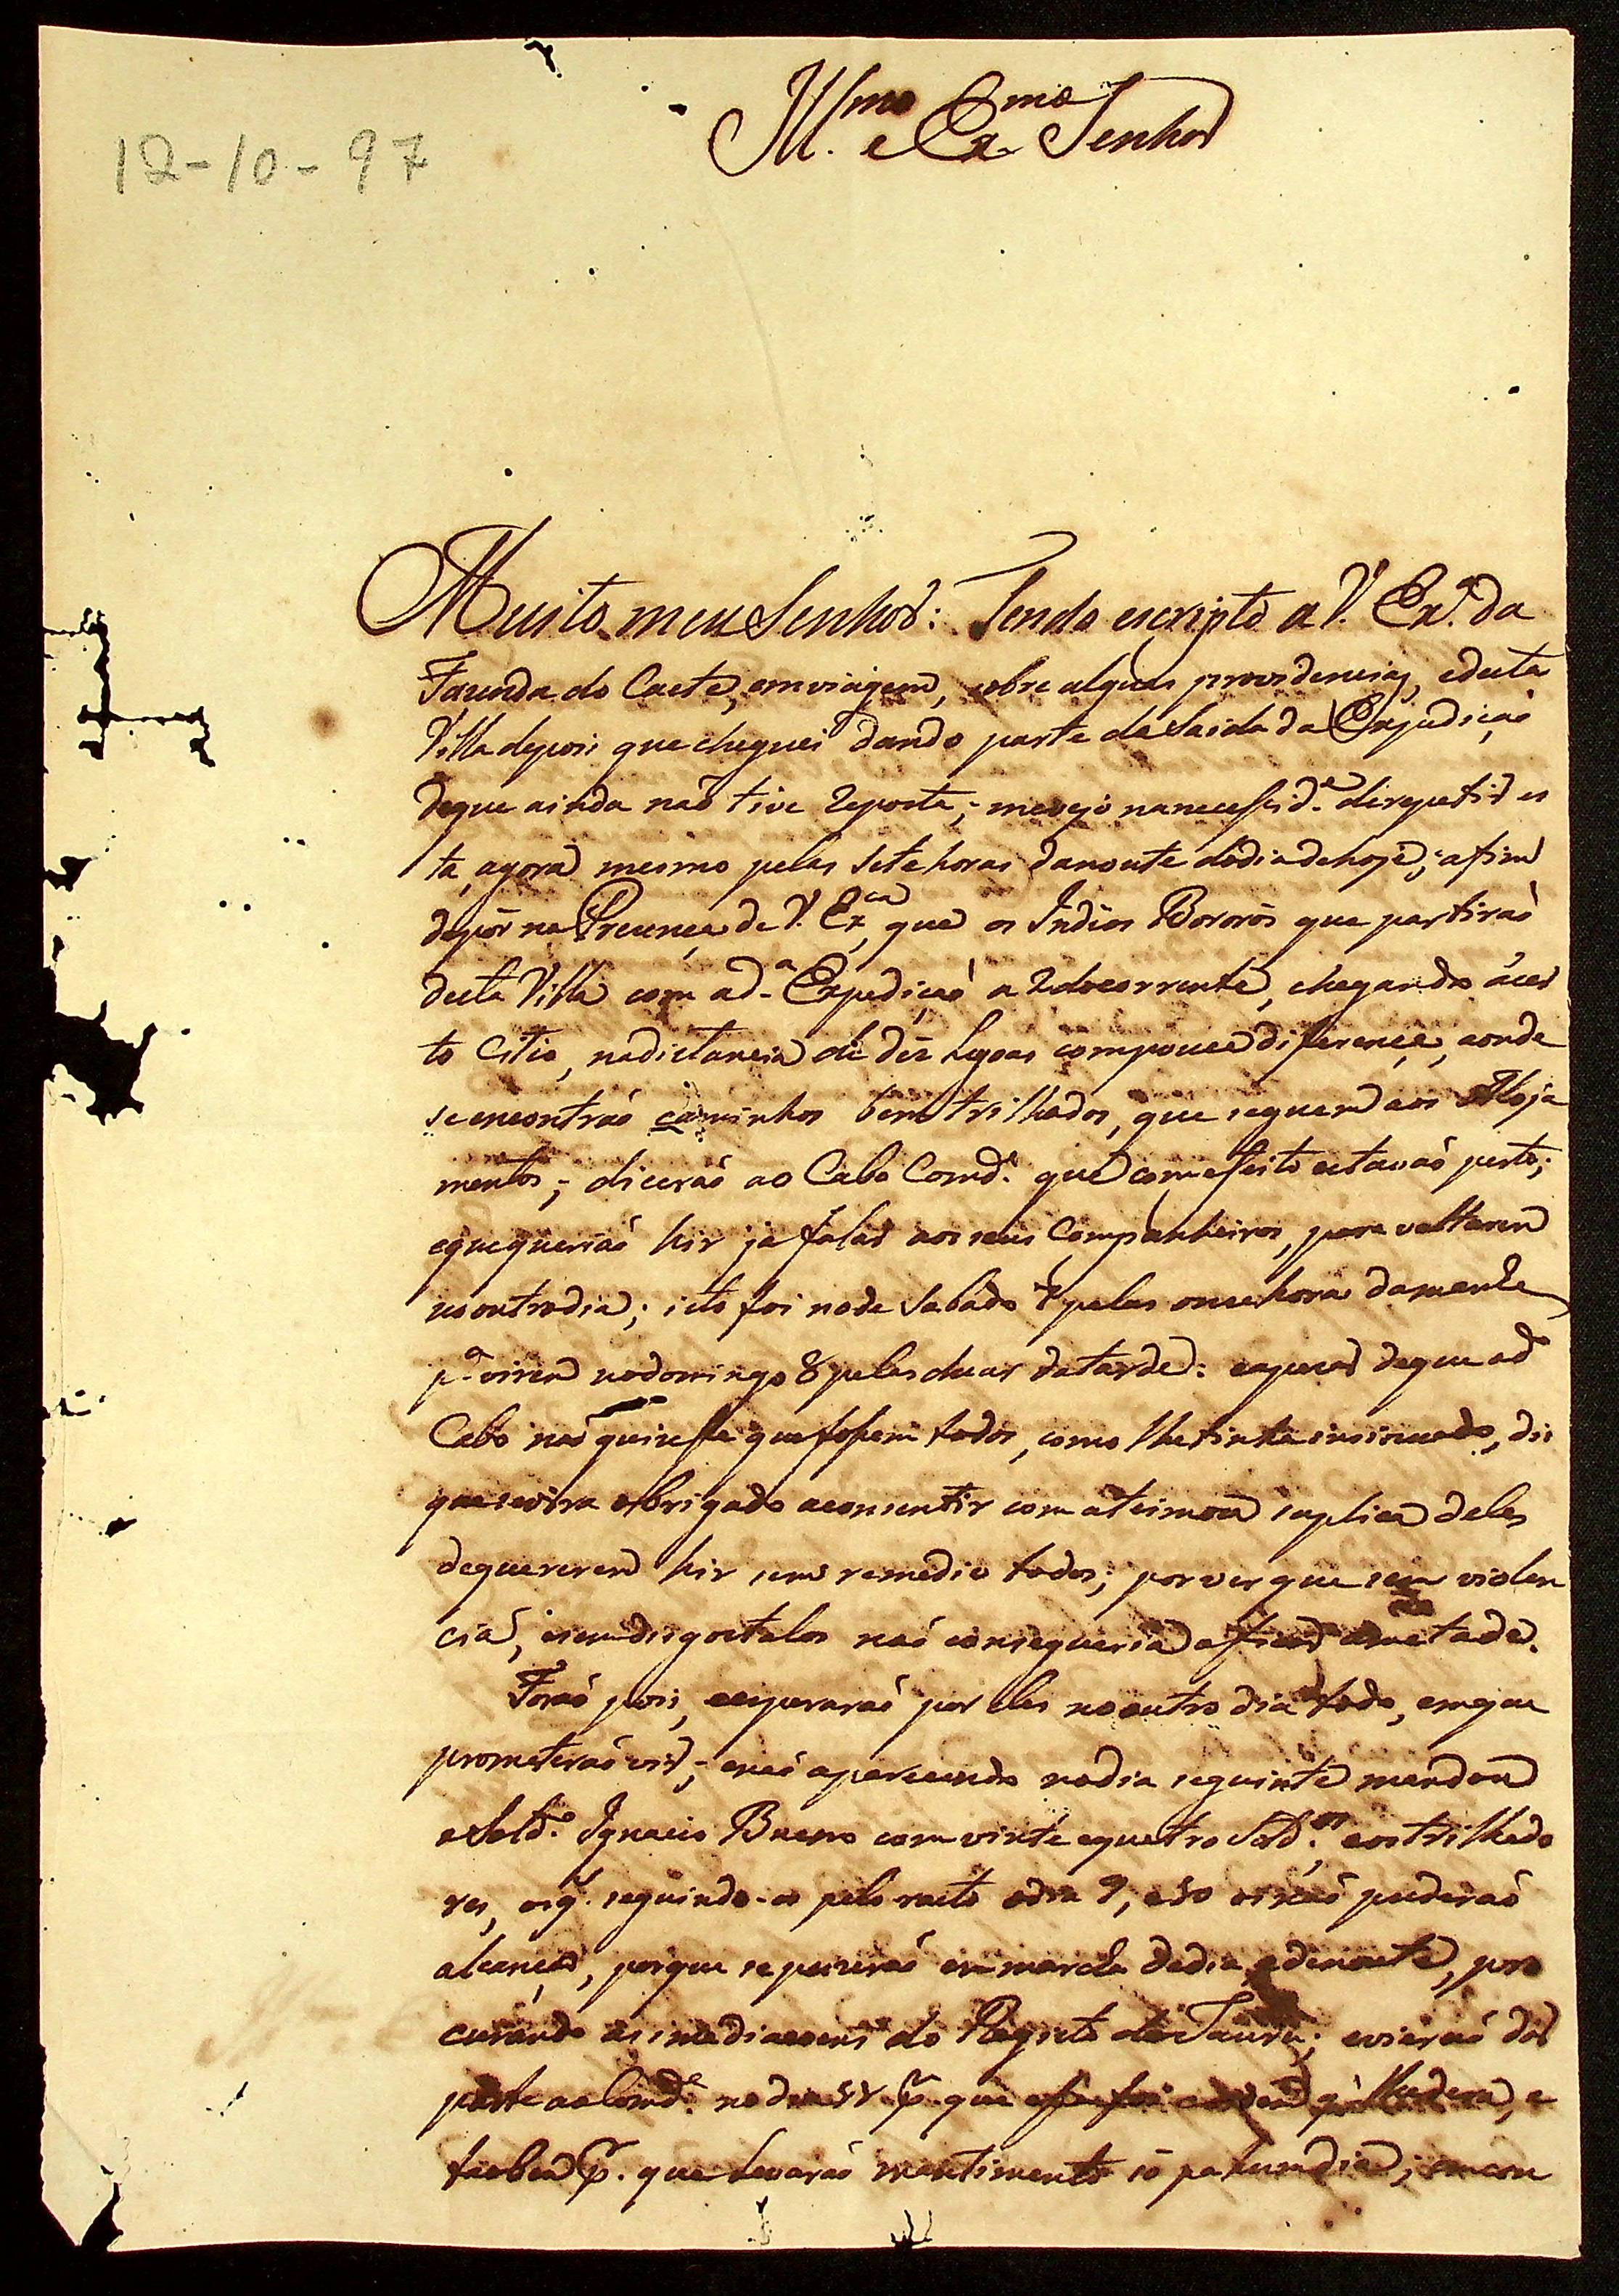 12-10-97
Ill.mo e Ex.mo Senhor
Muito meu Senhor: Tendo escripto a V. Ex.a da
Fazenda do Caete, em viagem, sobre algũas providencias, e desta
Villa depois que cheguei dando parte da Saida da Expediçaõ
de que ainda naõ tive Reposta; me vejo na necessid.e de repetir es
ta, agora mesmo pelas Sete horas da noute do dia de hoje; afim
de pôr na Prezença de V. Ex.ca, que os Indios Bororós que partiraõ
desta Villa com a d.a Expediçaõ a 2 do corrente, chegando á cer
to Citio, na distancia de déz legoas com pouca diferença, aonde
se encontraõ caminhos bem trilhados, que seguem aos Aloja
mentos; diceraõ ao Cabo Comd.e que com effeito estavaõ perto;
e que queriaõ hir ja falar aos seus Companheiros, para voltarem
no outro dia; isto foi no de Sabado 7 pelas onze horas da menhã
p.a virem no domingo 8 pelas duas da tarde: e apezar de que o d.o
Cabo naõ quizesse que fossem todos, como lhe tinha insinuado, diz
que se vira obrigado a consentir com a teimoza suplica deles
de quererem hir sem remedio todos; por ver que sem violen
cia, e sem disgostalos naõ conseguiria a ficar ametade.
Foraõ pois, e esperaraõ por eles no outro dia todo, em que
prometeraõ vir; e naõ aparecendo no dia seguinte mandou
o Sold.o Ignacio Bueno com vinte e quatro Sold.os, e os trilhado
res, os q.' seguindo-os pelo rasto o dia 9, e 10 os naõ puderaõ
alcançar, porque se puzeraõ em marcha de dia, e de noute, pro
curando as imediacoens do Registo do Jaurú; e vieraõ dar
parte ao Comd.e no dia 11 p.r que
taobem p.r que levaraõ mantimento só pa hum dia; em con